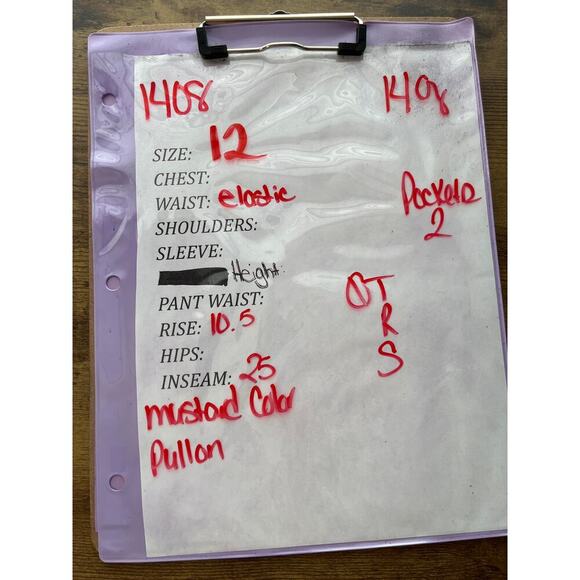 1408 1408
SIZE: 12
CHEST:
WAIST: elastic
Pockets
2
SHOULDERS:
SLEEVE:
Height:
PANT WAIST:
RISE: 10.5
HIPS:
INSEAM: 25
T
R
S
mustard Color
Pullon